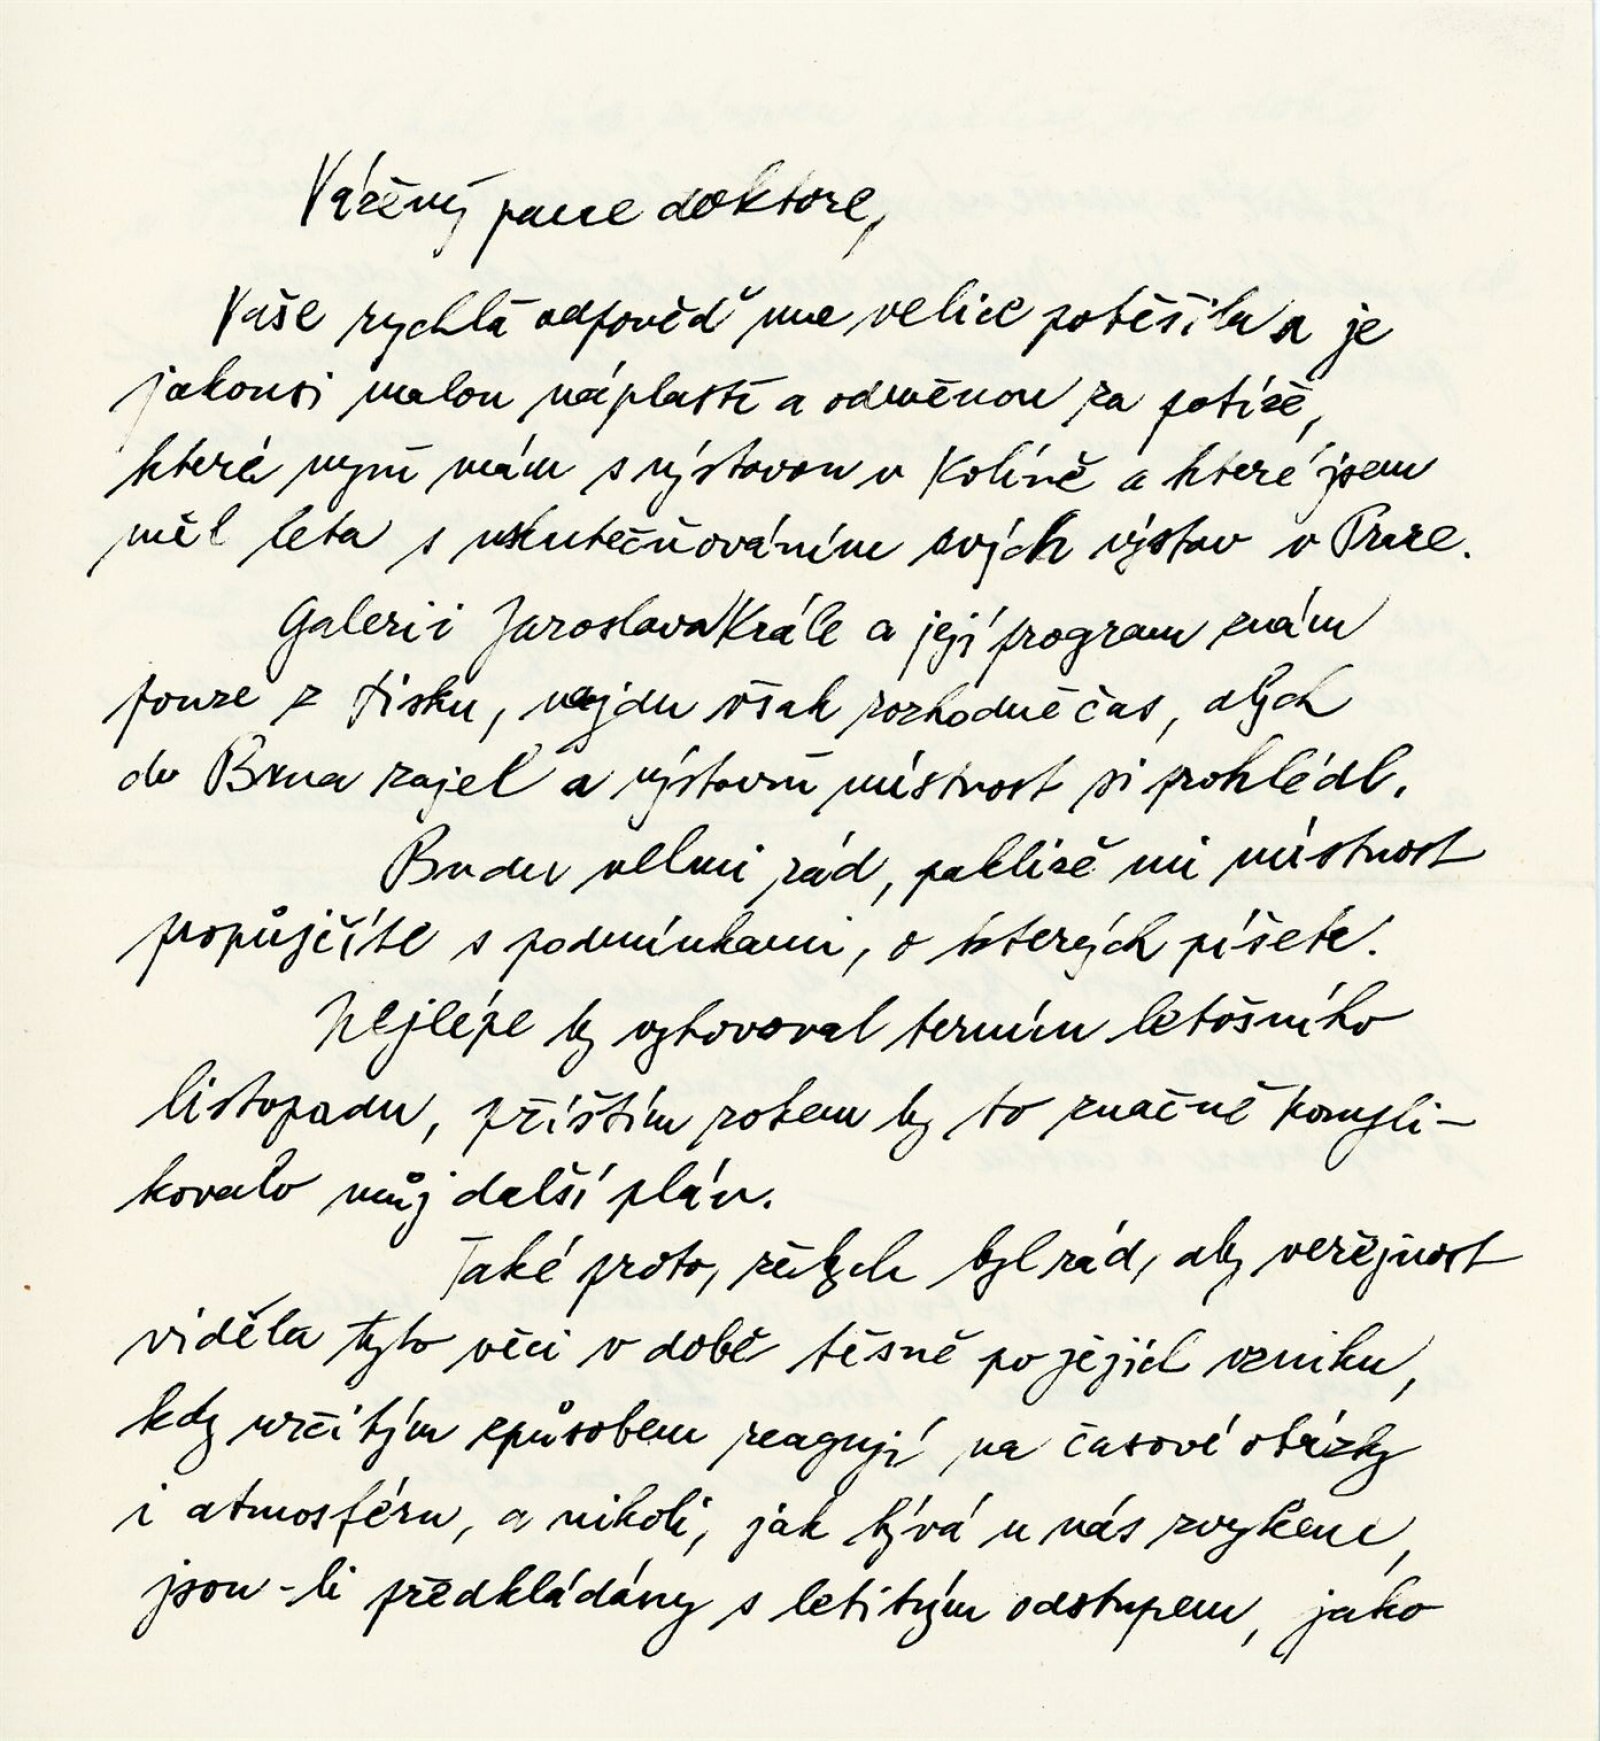 Vážený pane doktore,
Vaše rychlá odpověď mne velice potěšila a je
jakousi malou náplastí a odměnou za potíže,
které nyní mám s výstavou v Kolíně a které jsem
měl léta s uskutečňováním svých výstav v Praze.
Galerii Jaroslava Krále a její program znám
pouze z tisku, najdu však rozhodně čas, abych
do Brna zajel a výstavní místnost si prohlédl.
Budu velmi rád, pakliže mi místnost
propůjčíte s podmínkami, o kterých píšete.
Nejlépe by vyhovoval termín letošního
listopadu, příštím rokem by to značně kompli-
kovalo můj další plán.
Také proto, že bych byl rád, aby veřejnost
viděla tyto věci v době těsně po jejich vzniku,
kdy určitým způsobem reagují na časové otázky
i atmosféru, a nikoli, jak bývá u nás zvykem,
jsou-li předkládány s letitým odstupem, jako